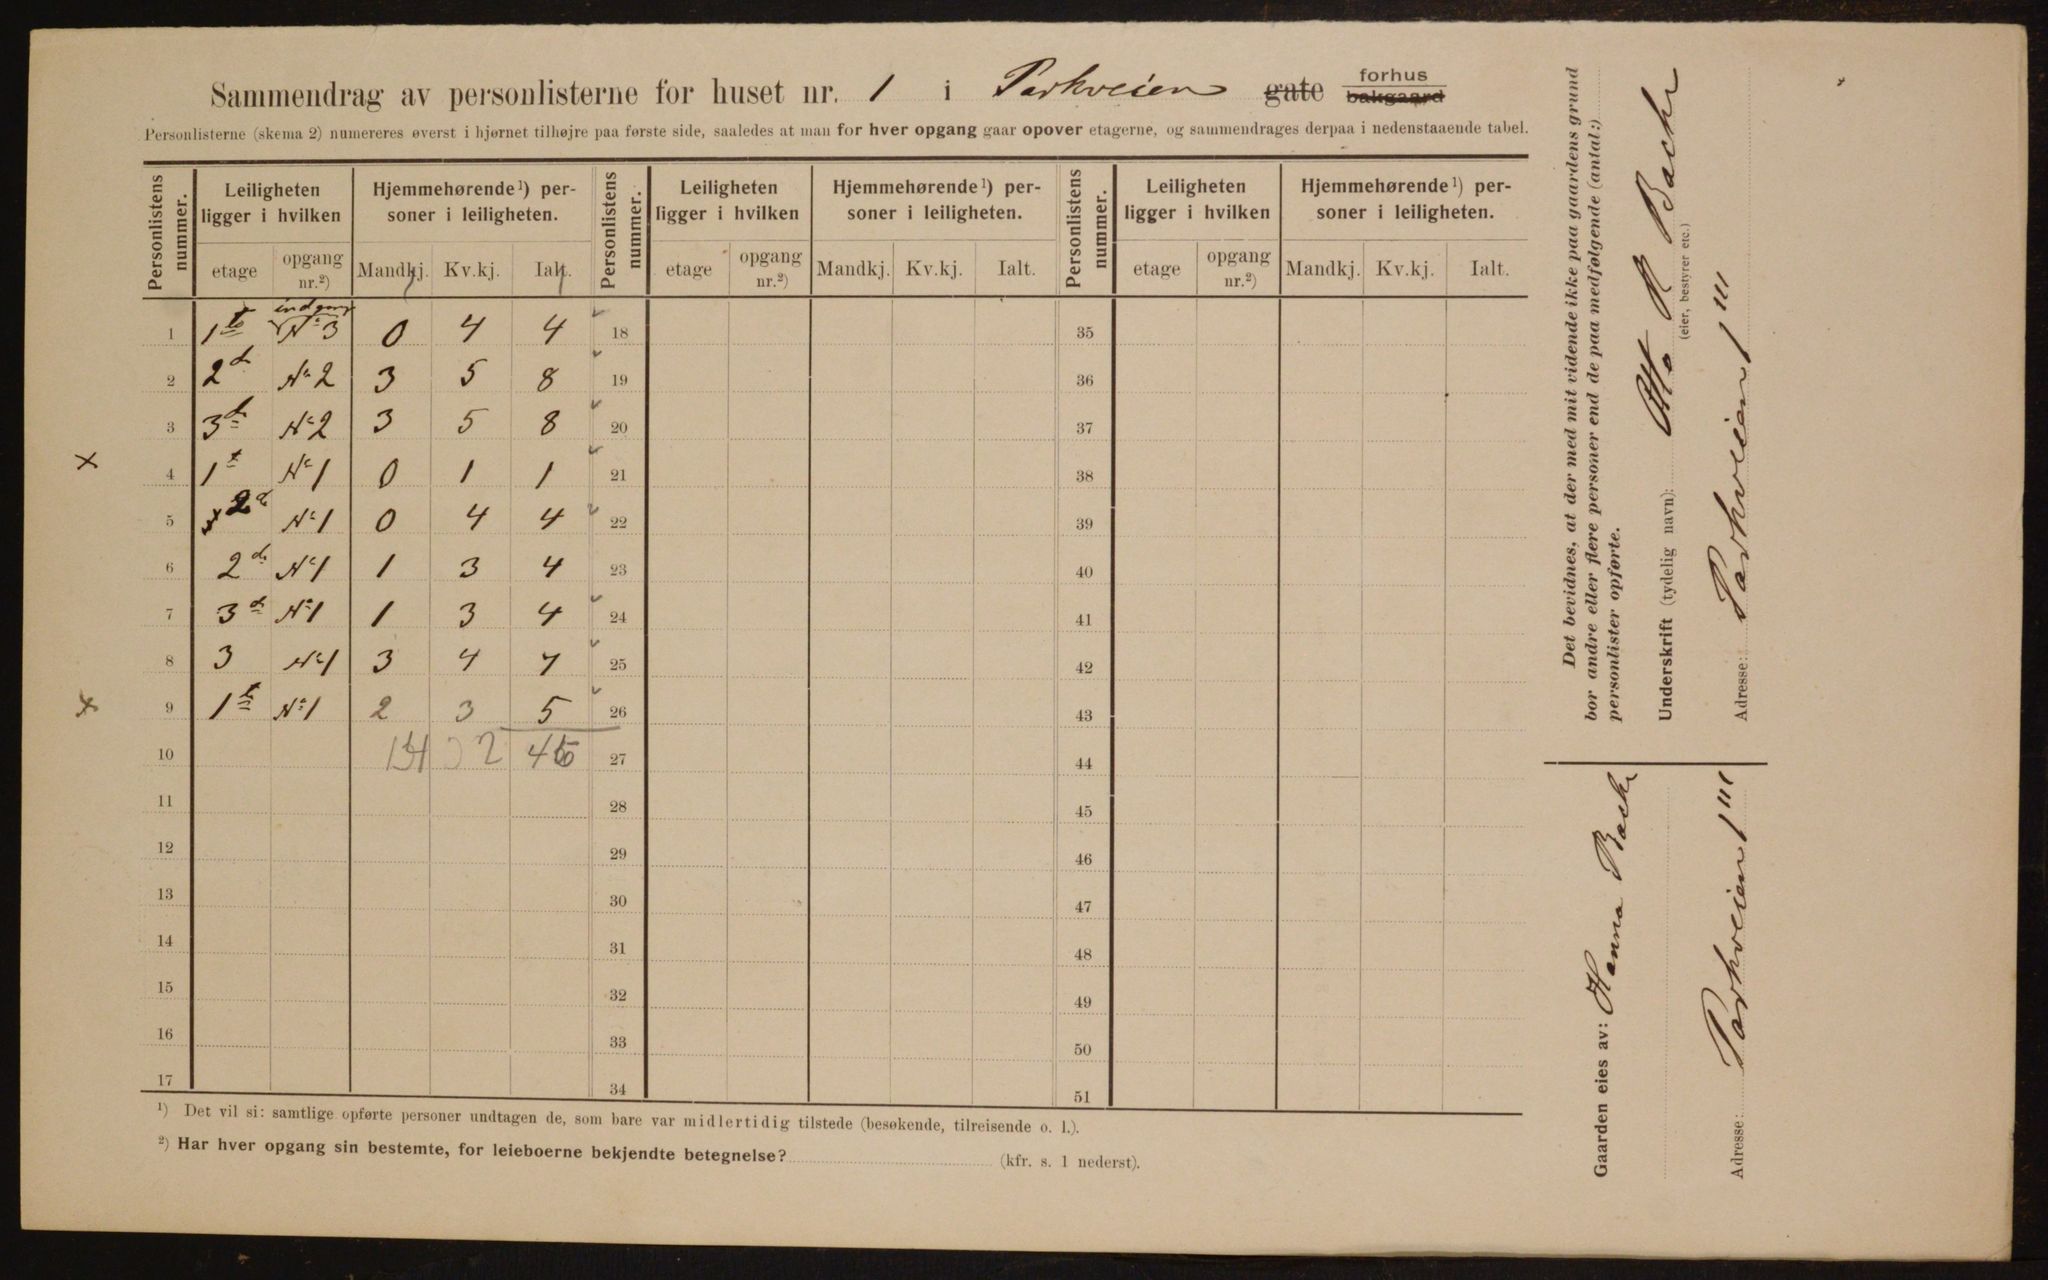 Sammendrag av personlisterne for huset nr. 1 i Parkveien gate forhus bakgaard
Personlisterne (skema 2) numereres øverst i hjørnet tilhøjre paa første side, saaledes at man for hver opgang gaar opover etagerne, og sammendrages derpaa i nedenstaaende tabel.
Personlistens nummer. Leiligheten ligger i hvilken Hjemmehørende¹) personer i leiligheten. Personlistens nummer. Leiligheten ligger i hvilken Hjemmehørende¹) personer i leiligheten. Personlistens nummer. Leiligheten ligger i hvilken Hjemmehørende¹) personer i leiligheten.
etage opgang nr.²) Mandkj. Kv.kj. Ialt. etage opgang nr.²) Mandkj. Kv.kj. Ialt. etage opgang nr.²) Mandkj. Kv.kj. Ialt.
indgang
1 1te No 3 0 4 4 18 35
2 2d No 2 3 5 8 19 36
3 3d No 2 3 5 8 20 37
x 4 1t No 1 0 1 1 21 38
5 2d No 1 0 4 4 22 39
6 2d No 1 1 3 4 23 40
7 3d No 1 1 3 4 24 41
8 3 No 1 3 4 7 25 42
x 9 1t No 1 2 3 5 26 43
10 32 45 27 44
11 28 45
12 29 46
13 30 47
14 31 48
15 32 49
16 33 50
17 34 51
¹) Det vil si: samtlige opførte personer undtagen de, som bare var midlertidig tilstede (besøkende, tilreisende o. l.).
²) Har hver opgang sin bestemte, for leieboerne bekjendte betegnelse? (kfr. s. 1 nederst).
Det bevidnes, at der med mit vidende ikke paa gaardens grund
bor andre eller flere personer end de paa medfølgende (antal:)
personlister opførte.
Underskrift (tydelig navn): Otto R Bache
(eier, bestyrer etc.)
Adresse: Parkveien 1 III
Gaarden eies av: Hanna Bache
Adresse: Parkveien 1 III